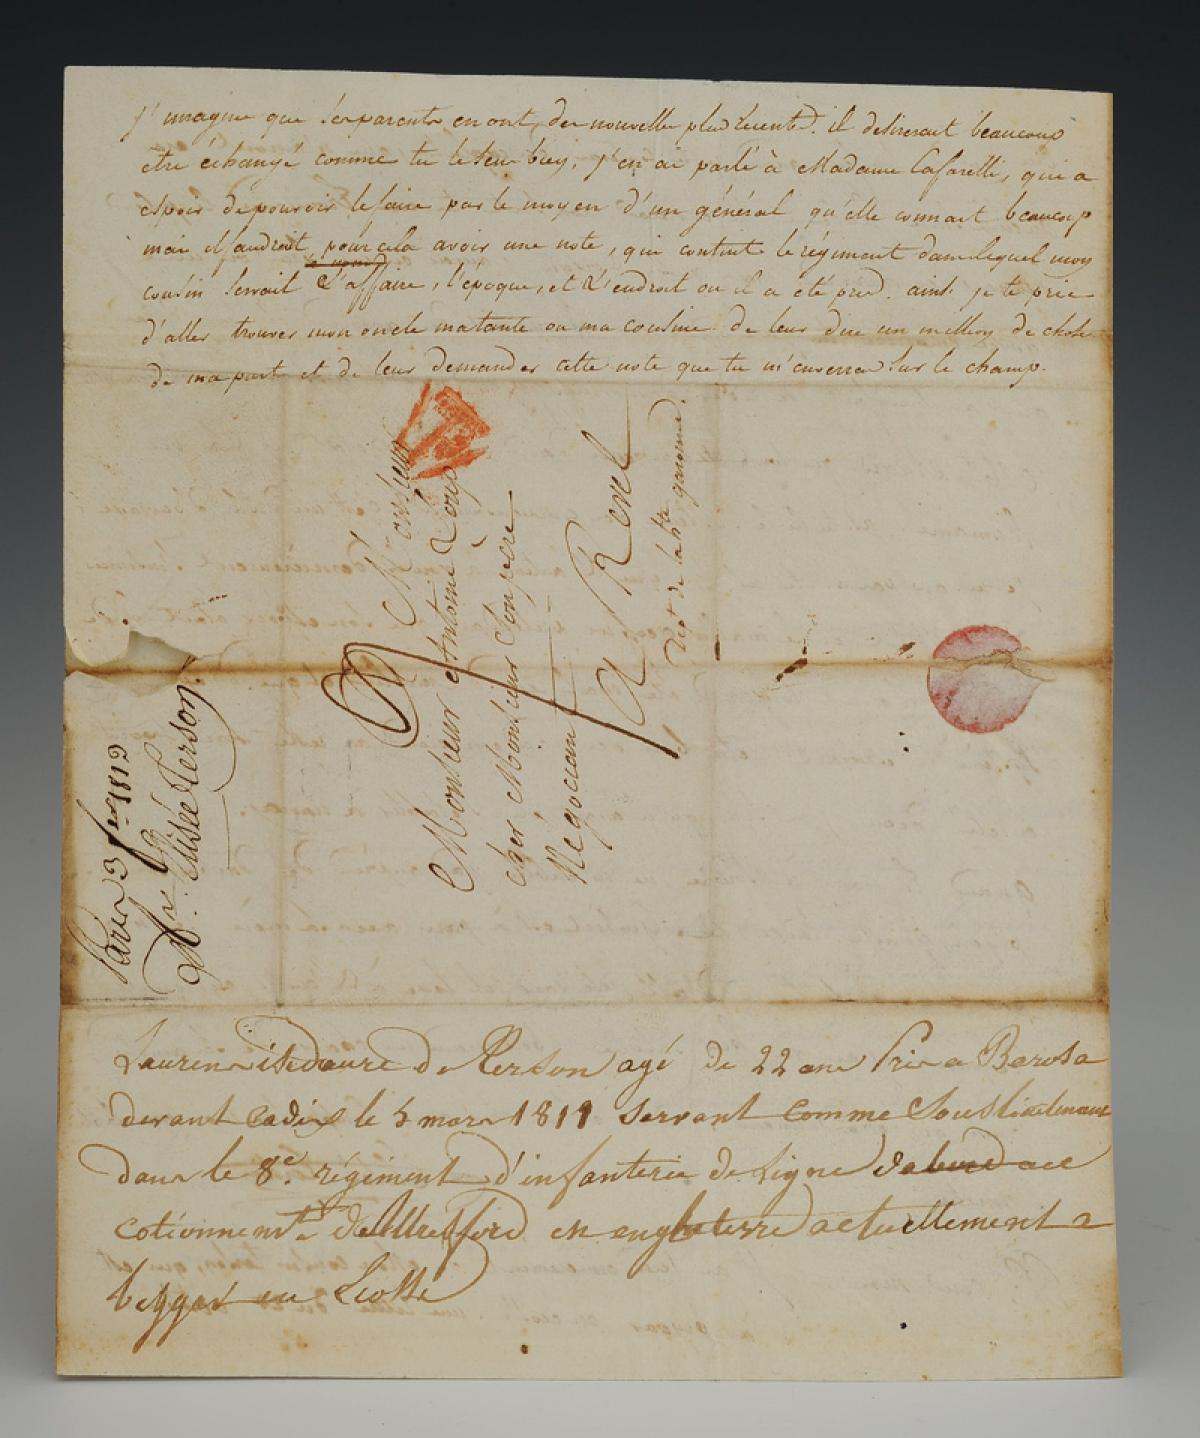 j'imagine que ses parents en ont, des nouvelles plus récentes. il desireroit beaucoup
etre échangé comme tu le sens bien, j'en ai parlé à Madame Cafarelli, qui a
espoir de pouvoir le faire par le moyen d'un général qu'elle connait beaucoup
mais il faudroit pour cela avoir une note, qui contint le régiment dans lequel mon
cousin servait L'affaire, l'époque, et L'endroit ou il a été pris. ainsi je te prie
d'aller trouver mon oncle ma tante ou ma cousine de leur dire un million de choses
de ma part et de leur demander cette note que tu m'enverras sur le champ.
A Monsieur
Monsieur Antoine Loup
chez Monsieur Son père
Négociant
a Revel
Dépt de la hte garonne.
Paris 3 1812
Elisée Person
Laurens isedaure de Person agé de 22 ans Pris a Barosa
devant Cadix le 5 mars 1811 servant comme Souslieutenant
dans le 8e. régiment d'infanterie de Ligne dabord au
cotionnemt en engleterre actuellement a
en Ecosse